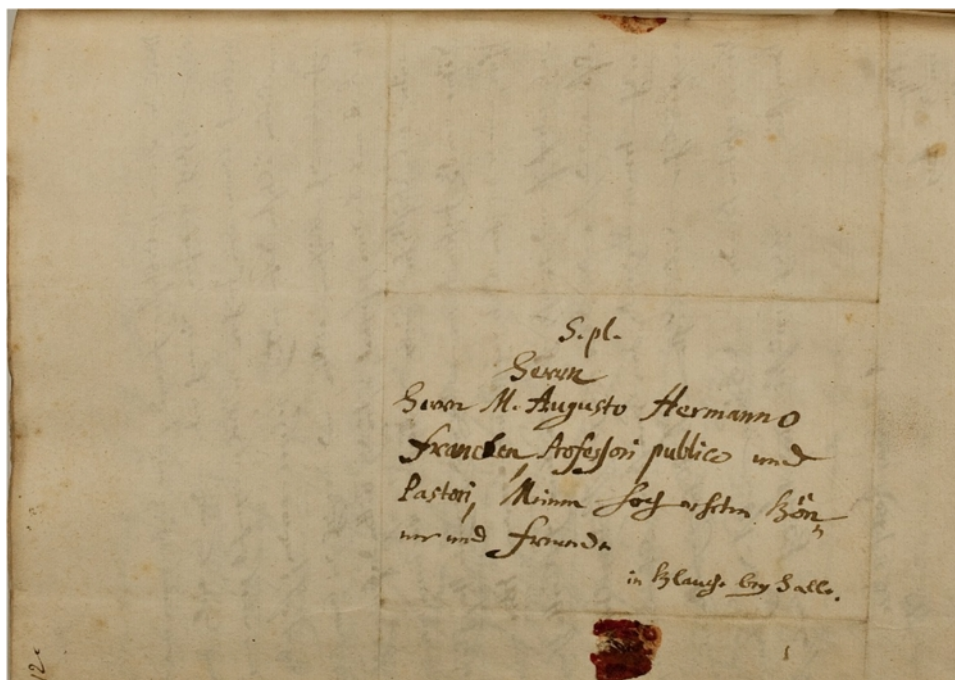 S. pl.
Herrn
Herrn M. Augusto Hermanno
Francken, Professori publico und
Pastori, Meinem hoch geehrten Gön-
ner und Freunde
in Glauche bey Halle.